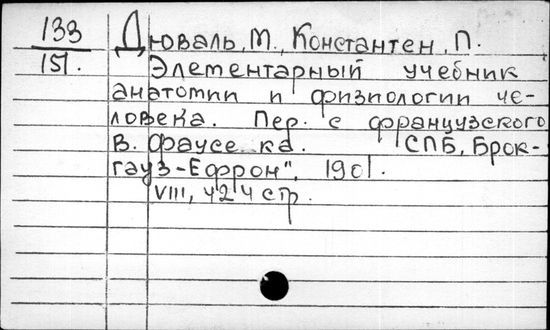 133 Дюваль, М., Константен, П.
151. Элементарный учебник
анатомии и физиологии че-
ловека. Пер. с французского
В. Фаусе ка. СПБ, Брок-
гауз-Ефрон", 1901.
VIII, 424 стр.